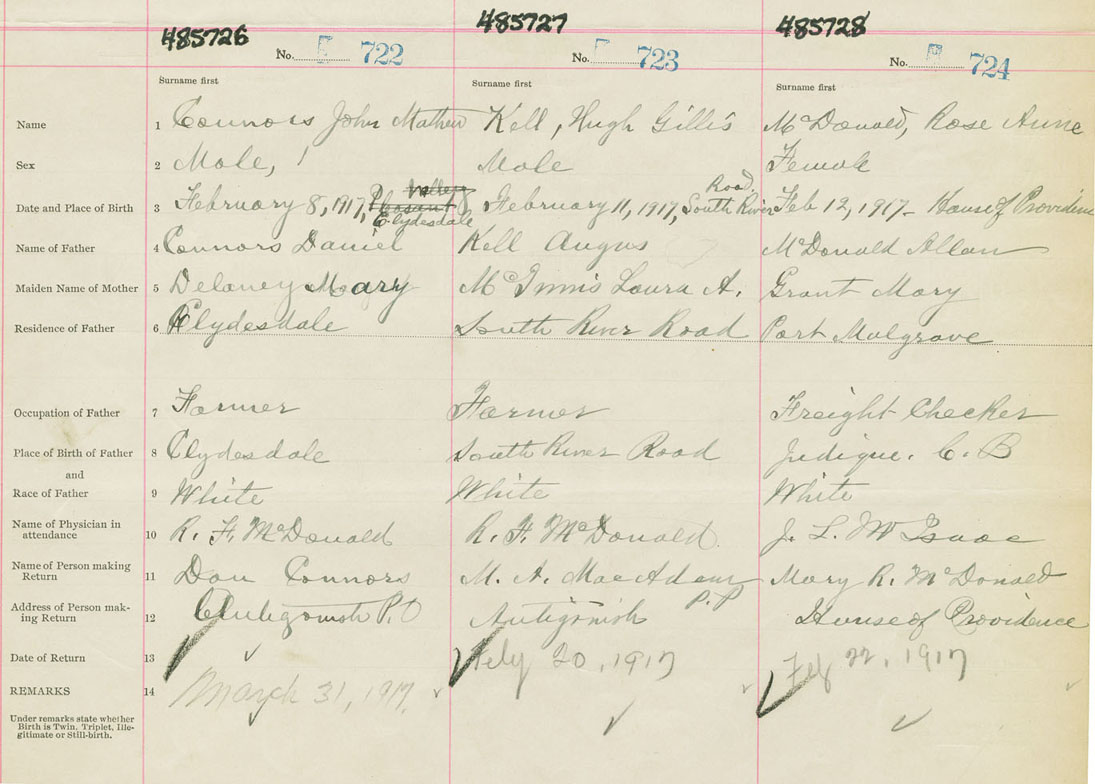 485726 485727 485728
No. 722 No. 723 No. 724
Surname first Surname first Surname first
Name 1 Connors John Mathew Kell, Hugh Gillis McDonald, Rose Anne
Sex 2 Male, Male Female
Valley Road.
Date and Place of Birth 3 February 8, 1917, Pleasant February 11, 1917, South River Feb 12, 1917- House of Providence
Clydesdale
Name of Father 4 Connors Daniel Kell Angus McDonald Allan
Maiden Name of Mother 5 Delaney Mary McInnis Laura A. Grant Mary
Residence of Father 6 Clydesdale South River Road Port Mulgrave
Occupation of Father 7 Farmer Farmer Freight Checker
Place of Birth of Father 8 Clydesdale South River Road Judique. C. B
and
Race of Father 9 White White White
Name of Physician in
attendance 10 R. F. McDonald R. F. McDonald. J. L. McIsaac
Name of Person making
Return 11 Dan Connors M. A. MacAdam P.P Mary R. McDonald
Address of Person mak-
ing Return 12 Antigonish P.O Antigonish House of Providence
Date of Return 13 Feby 20, 1917 Feb 22, 1917
REMARKS 14 March 31, 1917,
Under remarks state whether
Birth is Twin, Triplet, Ille-
gitimate or Still-birth.